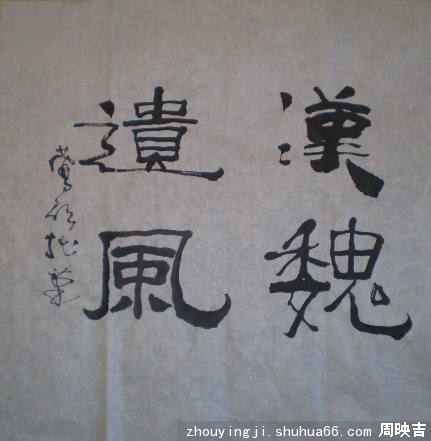 漢魏
遺風
拙筆
zhouyingji.shuhua66.com 周映吉